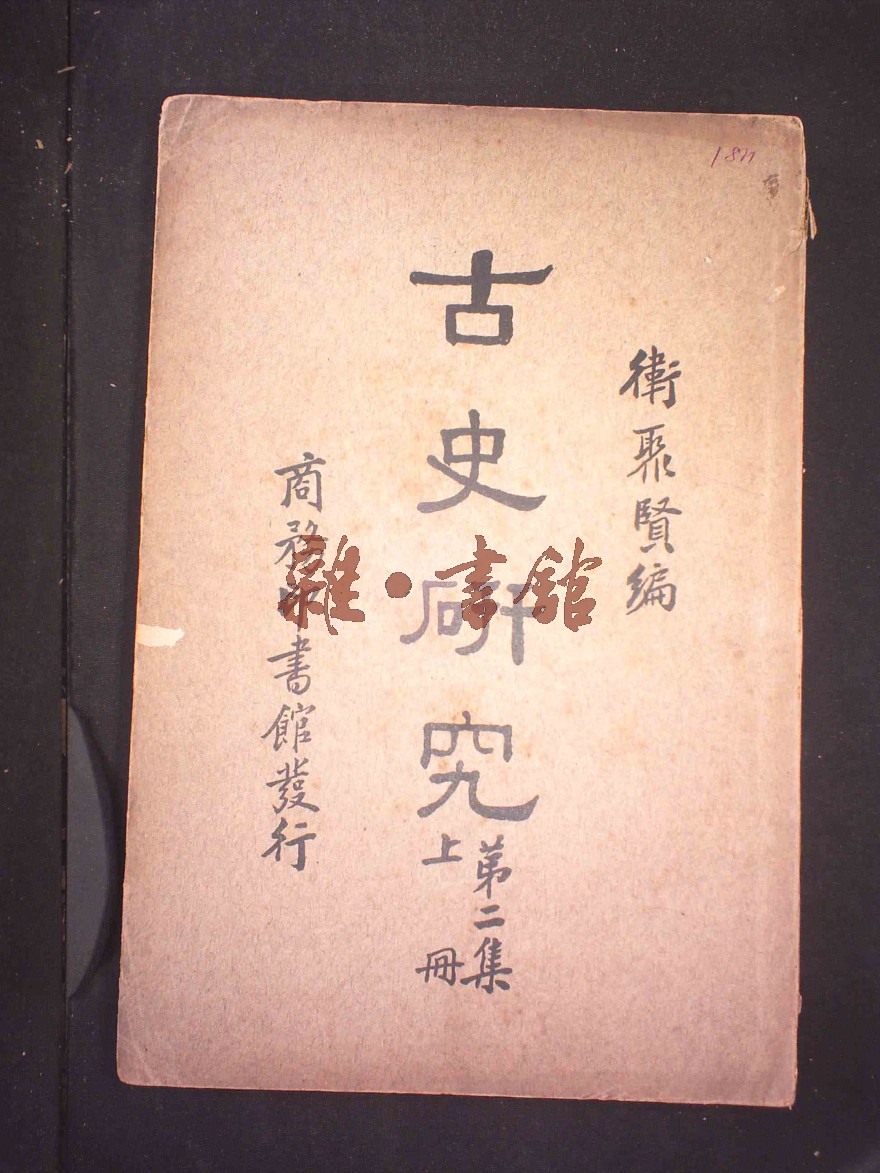 衛聚賢編
古史研究
第二集
上冊
商務印書館發行
雜·書館